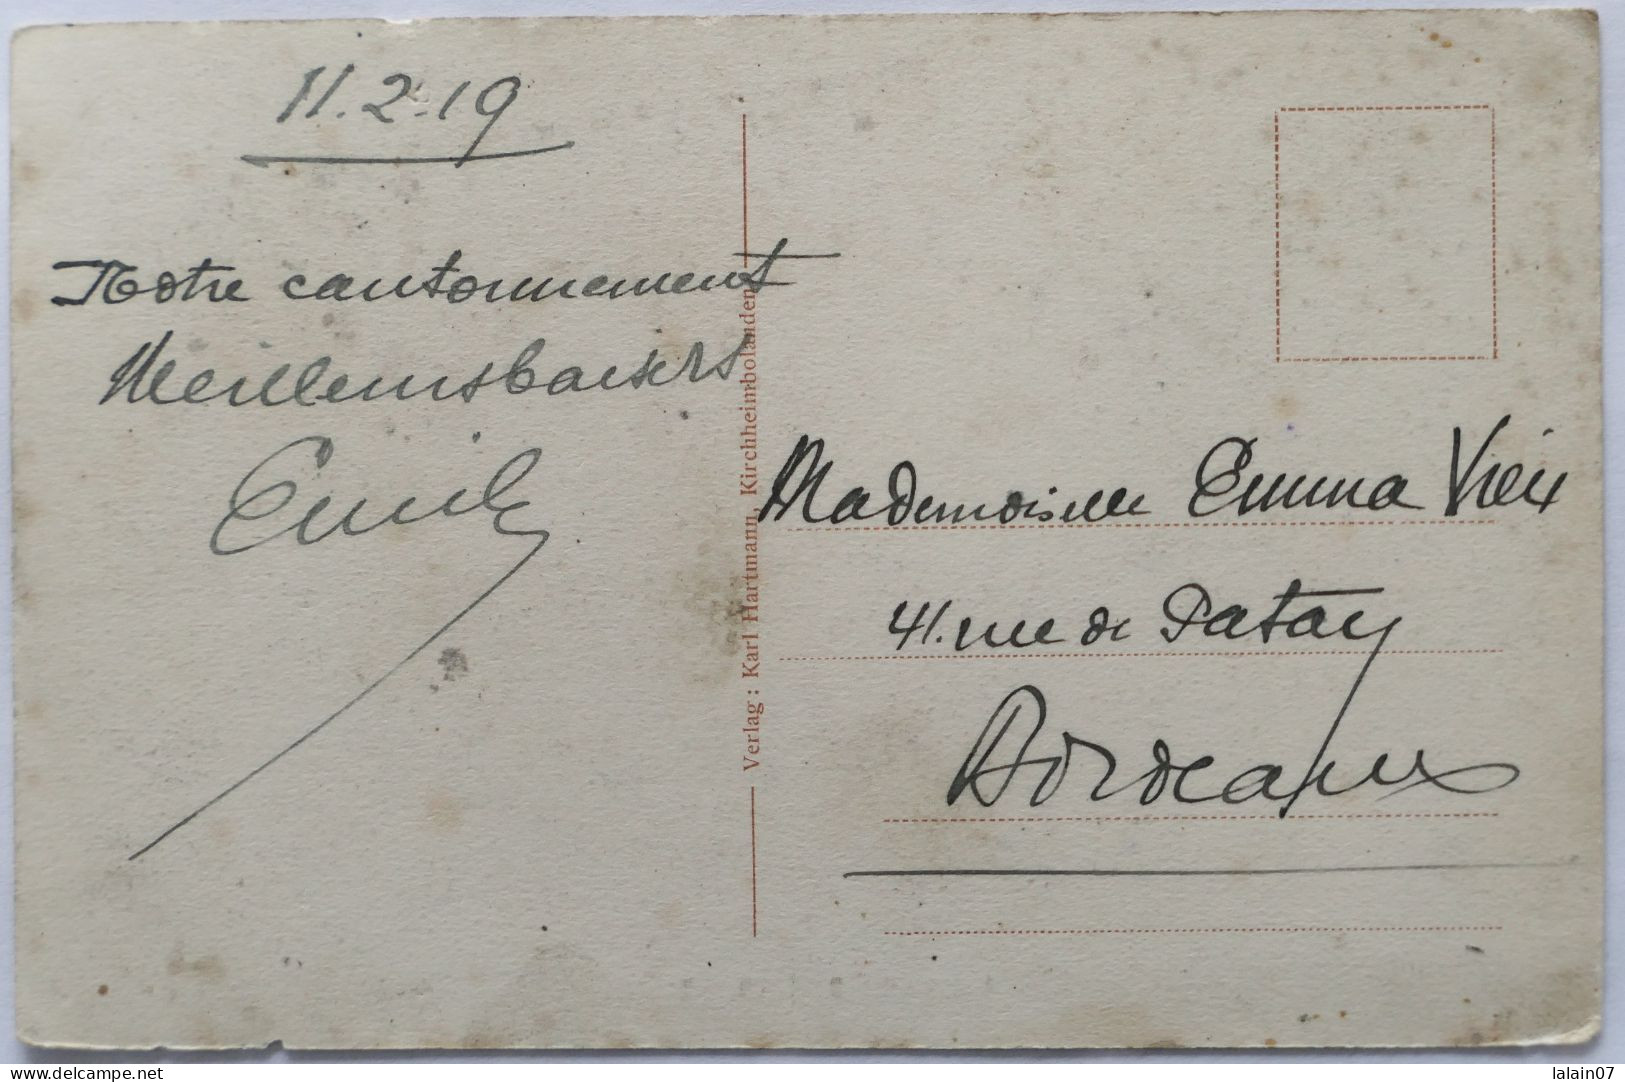 11.2.19
Notre cantonnement
Meilleurs baisers
Emile
Verlag: Karl Hartmann, Kirchheimbolanden
Mademoiselle Emma Vieix
41. rue de Patay
Bordeaux
www.delcampe.net
lalain07